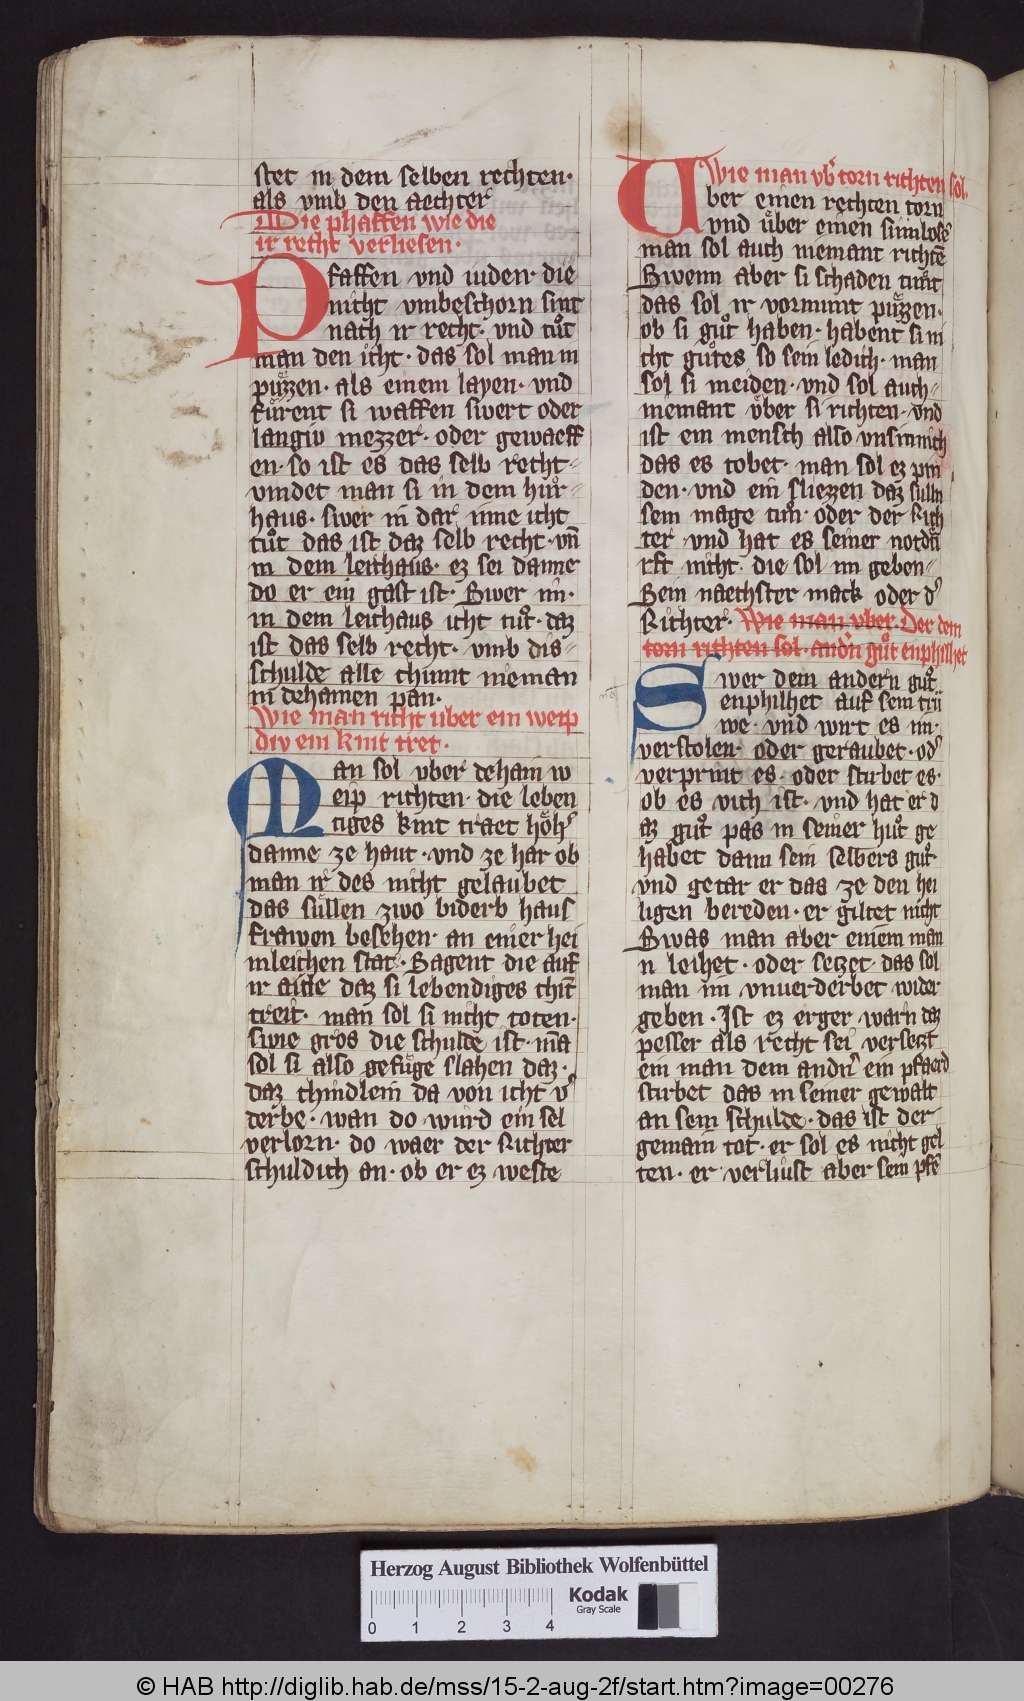 stet in dem selben rechten·
als vmb den aechter
Die phaffen wie die
ir recht verliesen·
Pfaffen vnd iuden· die
nicht vmbeschorn sint
nach ir recht· vnd tuͦt
man den icht· das sol man in
puͤzzen· als einem layen· vnd
fuͤrent si waffen swert oder
langiv mezzer· oder gewaeff
en· so ist es das selb recht·
vindet man si in dem huͦr-
haus· swer in dar inne icht
tuͦt das ist daz selb recht· vn̄
in dem leithaus· ez sei danne
do er ein gast ist· Swer im·
in dem leithaus icht tuͦt· daz
ist das selb recht· vmb dis-
schulde alle chumt nieman
in dehainen pan·
Wie man richt uber ein weip
div ein kint tret·
Man sol vber dehain w
eip richten· die leben
tiges kint traet hoͤh'
danne ze haut· vnd ze har ob
man ir des nicht gelaubet
das suͤllen zwo biderb haus
frawen besehen· an einer hei
mleichen stat· Sagent die auf
ir aide daz si lebendiges chīt
treit· man sol si nicht toten·
swie gros die schulde ist· mā
sol si also gefuͤge slahen daz·
daz chindlein da von icht v'
derbe· wan do wurd ein sel
verlorn· do waer der Richter
schuldich an· ob er ez weste
Wie man vb' torn richten sol·
Vber einen rechten torn
vnd uͤber einen sinnlose
man sol auch niemant richtē
Swenn aber si schaden tuͦnt
das sol ir vormunt puͤzzen·
ob si guͦt haben· habent si ni
cht guͦtes so sein ledich· man
sol si meiden· vnd sol auch-
niemant uͤber si richten· vnd
ist ein mensch also vnsinnich
das es tobet· man sol ez pin
den· vnd ein sliezzen daz sulln
sein mage tuͦn· oder der Rich
ter· vnd hat es seiner notdu
rft nicht· die sol im geben-
Sein naechster mack oder d'
Richter· Wie man vber· Der dem
torn richten sol· andn guͦt enphilhet
Swer dem andern guͦt
enphilhet auf sein trii
we· vnd wirt es im·
verstolen· oder geraubet· od'
verprint es· oder stirbet es·
ob es vich ist· vnd hat er d
az guͦt pas in seiner huͦt ge
habet dann sein selbers guͦt·
vnd getar er das ze den hei
ligen bereden· er giltet nicht
Swas man aber einem man
n leihet· oder setzet· das sol
man im vnuerderbet wider
geben· Ist ez erger warn daz
pesser als recht sei versetzt
ein man dem andn' ein pfaerd
stirbet das in seiner gewalt
an sein schulde· das ist der
gemain tot· er sol es nicht gel
ten· er verliust aber sein pfē
Herzog August Bibliothek Wolfenbüttel
0 1 2 3 4
Kodak
Gray Scale
© HAB http://diglib.hab.de/mss/15-2-aug-2f/start.htm?image=00276